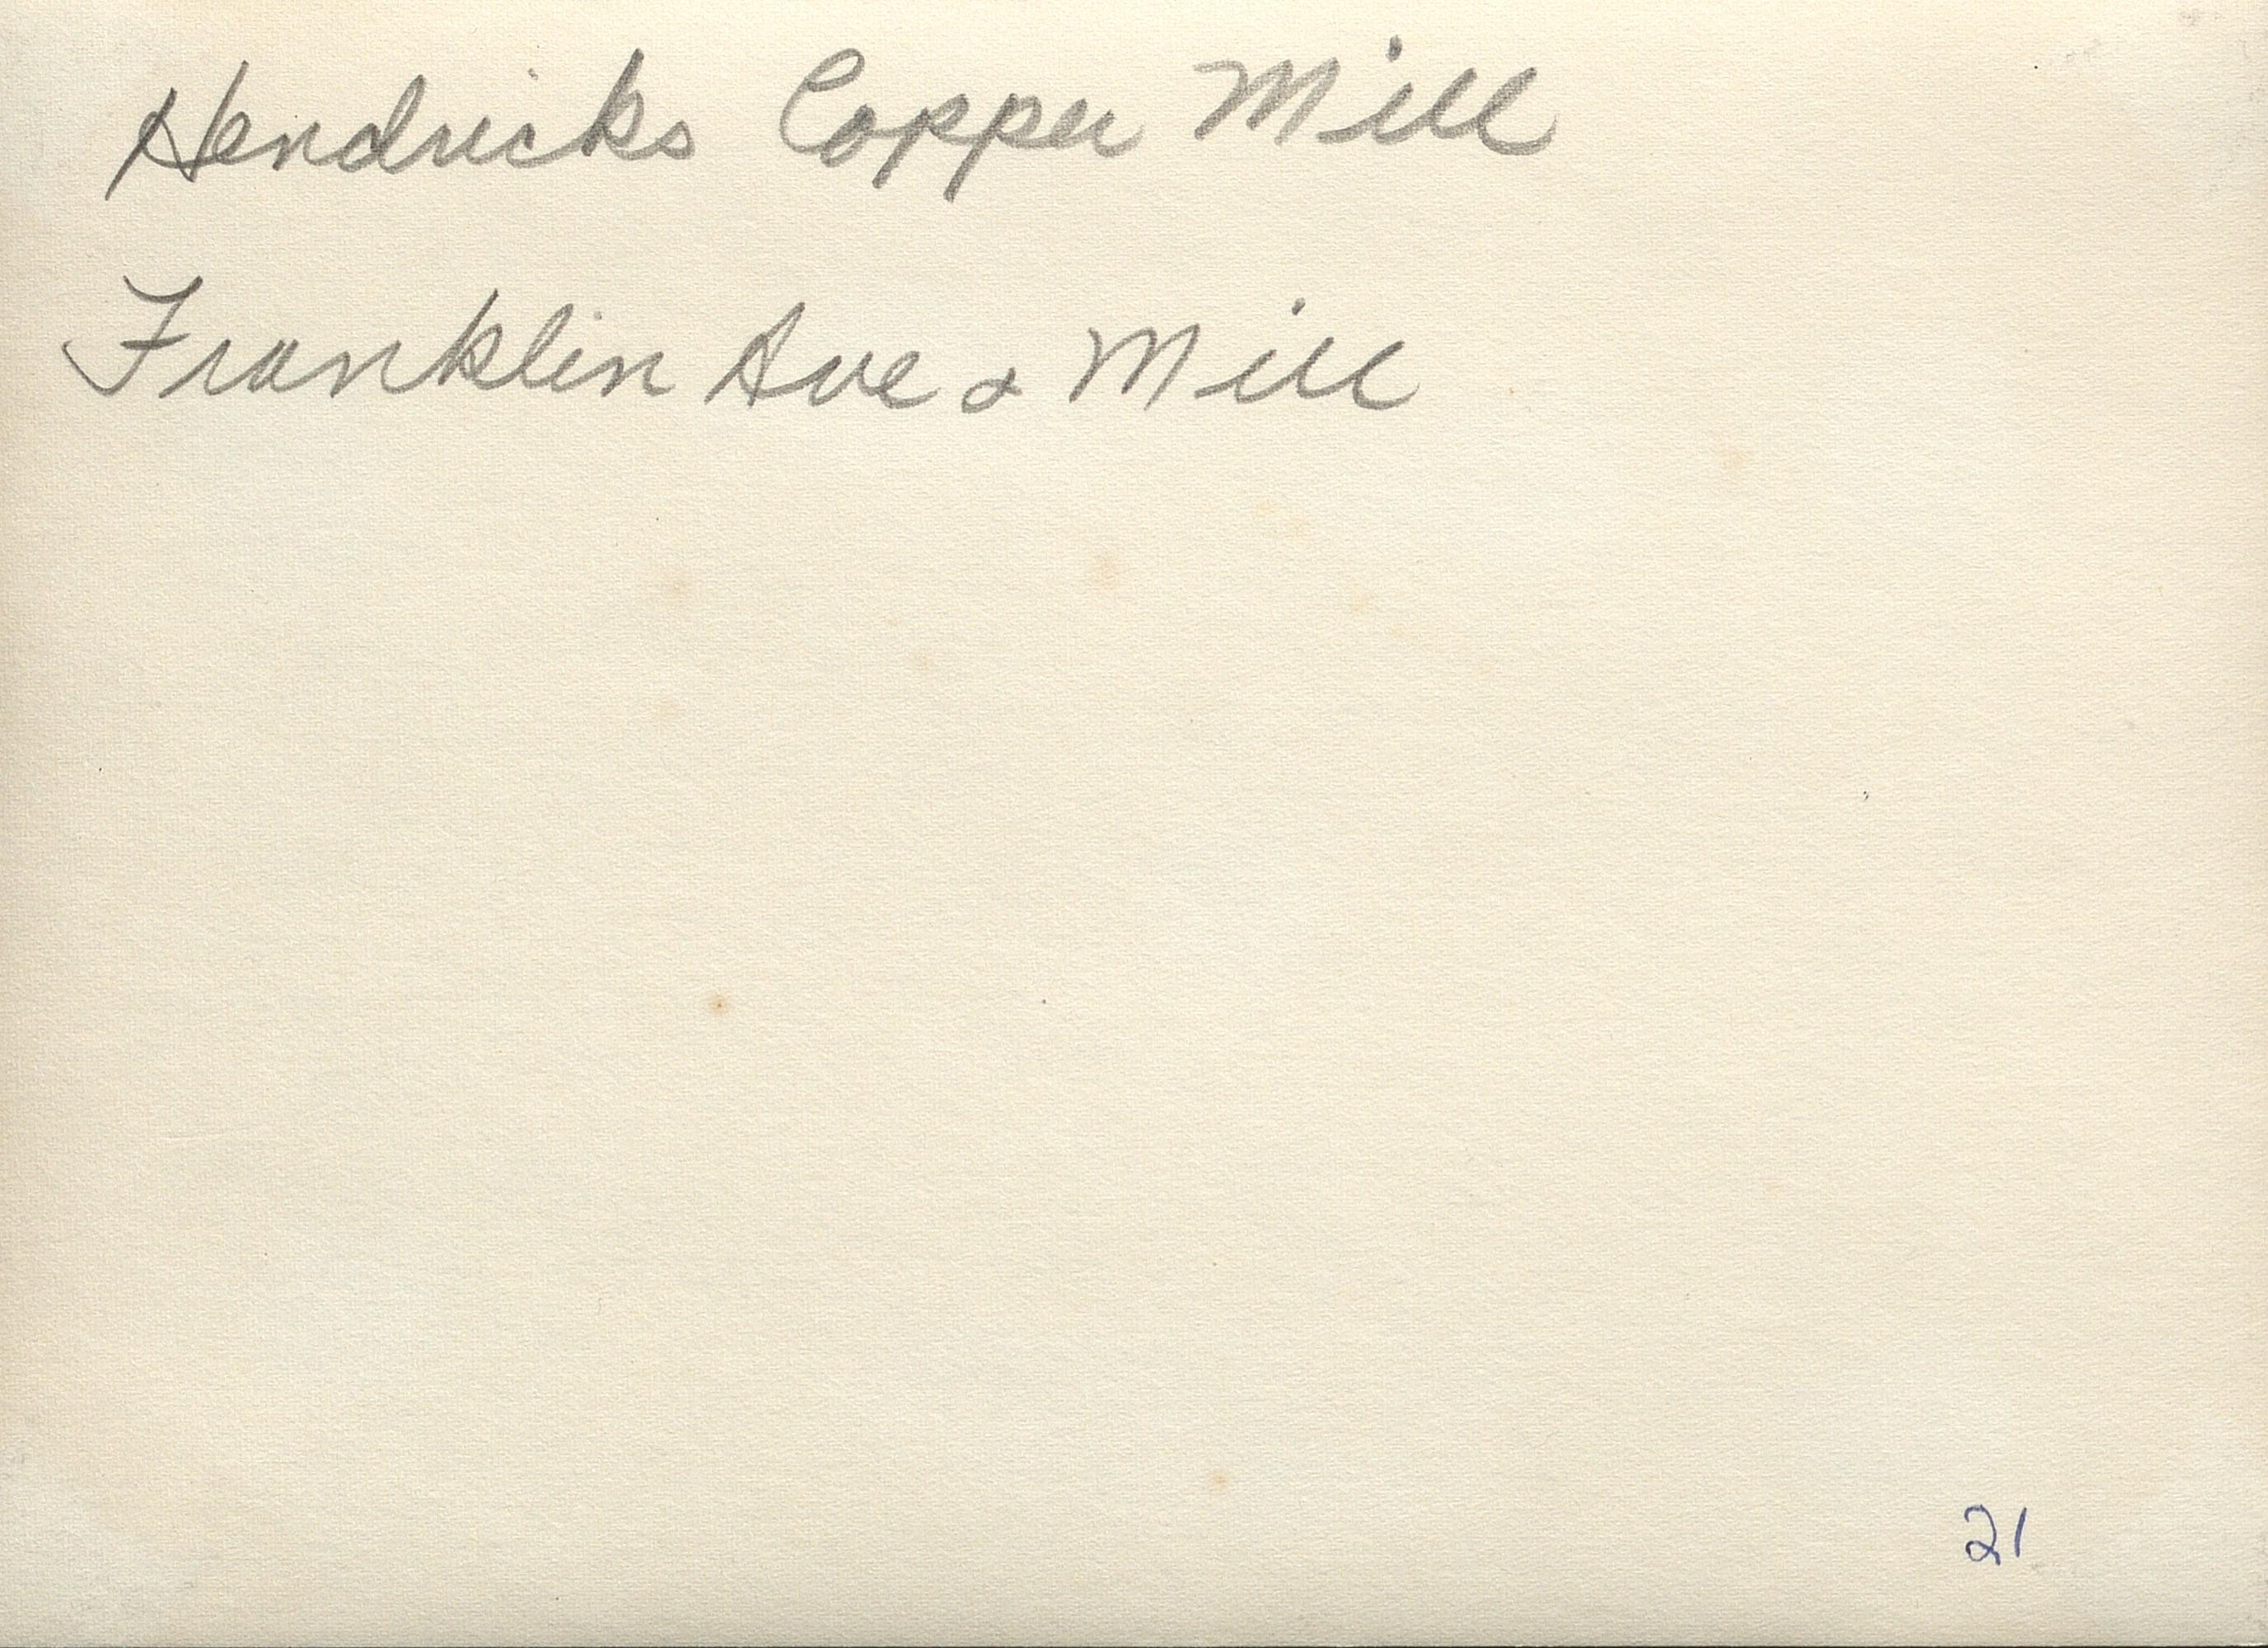 Hendricks Copper Mill
Franklin Ave & Mill
21